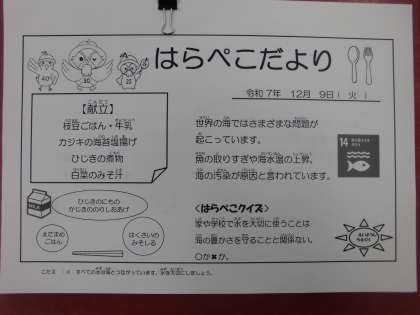 はらぺこだより
令和7年 12月 9日( 火 )
40
30
20
【献立】
枝豆ごはん・牛乳
カジキの海苔塩揚げ
ひじきの煮物
白菜のみそ汁
世界の海ではさまざまな問題が
起こっています。
魚の取りすぎや海水温の上昇、
海の汚染が原因と言われています。
14
<はらぺこクイズ>
家や学校で水を大切に使うことは
海の豊かさを守ることと関係ない。
○か✖か。
ひじきのにもの
かじきののりしおあげ
えだまめ
ごはん
はくさいの
みそしる
こたえ : ✖ すべての水は海とつながっています。水を大切にしましょう。